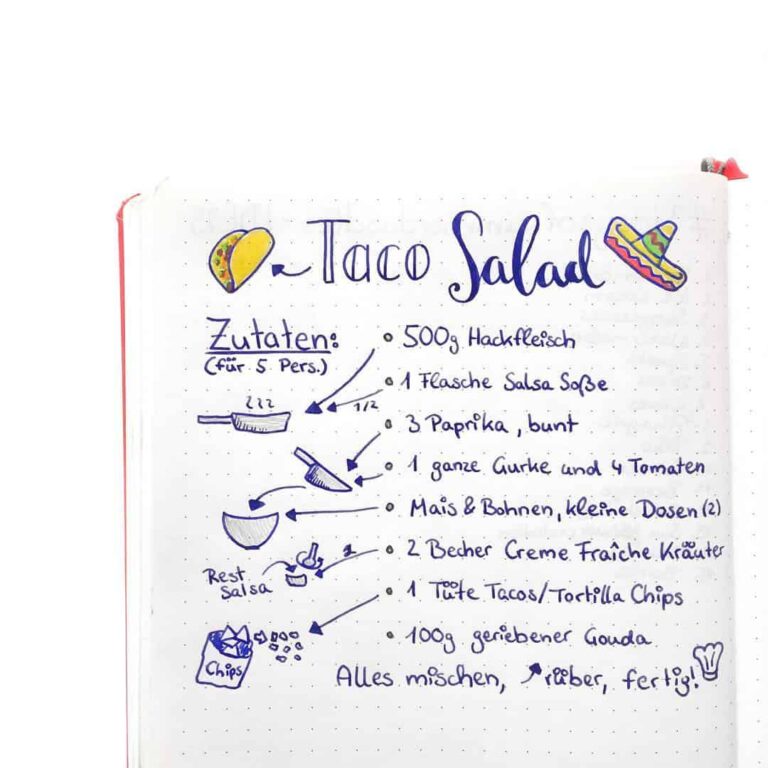 Taco Salad
Zutaten:
(für 5 Pers.)
• 500g Hackfleisch
• 1 Flasche Salsa Soße
1/2
• 3 Paprika, bunt
• 1 ganze Gurke und 4 Tomaten
• Mais & Bohnen, kleine Dosen (2)
• 2 Becher Creme Fraîche Kräuter
1
Rest Salsa
• 1 Tüte Tacos/Tortilla Chips
• 100g geriebener Gouda
Chips
Alles mischen, rüber, fertig!